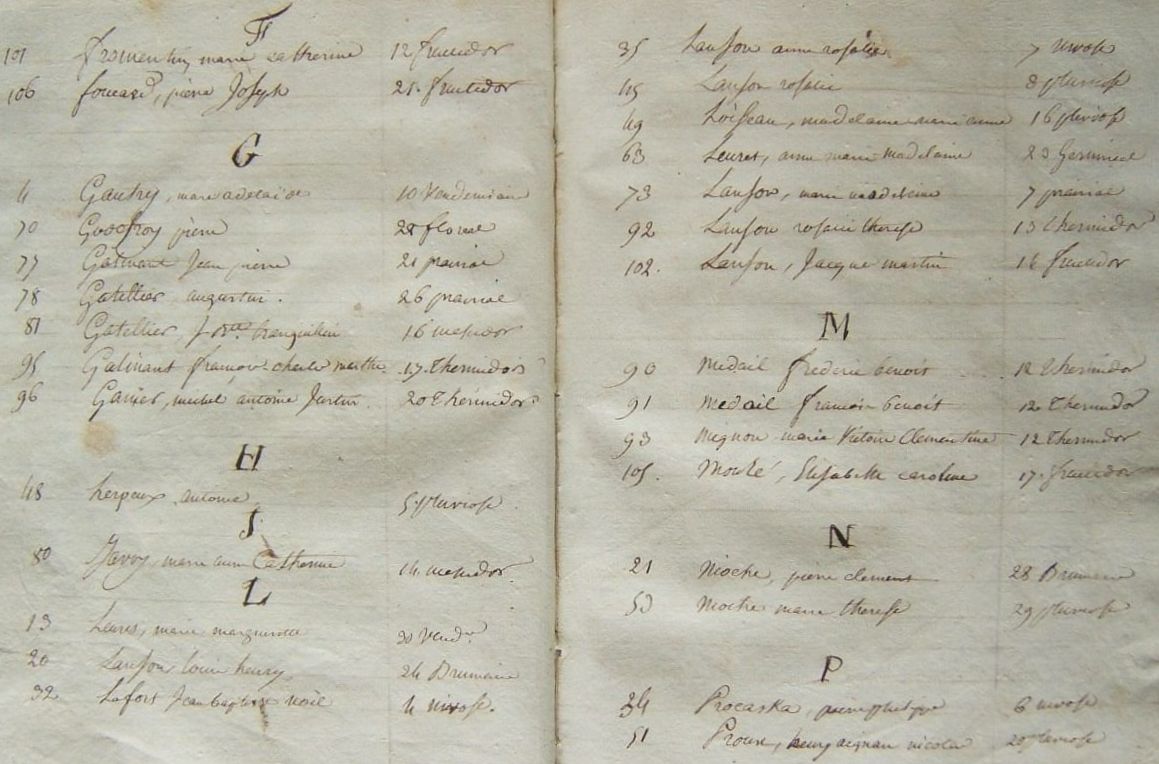 F
101 fromentin, marie catherine 12 fructidor
106 foucard, pierre Joseph 21. fructidor
G
4 Gautry, marie adelaide 10 Vendemiaire
70 Godefroy pierre 28 floreal
77 Galinant Jean pierre 21 prairial
78 Gatellier, augustin. 26 prairial
81 Gatellier, 16 messidor
95 Galinant françois charles marthe. 17. Thermidor
96 Ganier, michel antoine Justin. 20 Thérmidor
H
48 herpeux antoine 5 pluviose
J
80 Javoy, marie anne Catherine 14 messidor.
L
13 Leures, marie marguerite 30 Vend.re
20 Lanson louis henry 24 Brumaire
32 Lafort Jean baptiste noël 4 nivose.
35 Lanson anne rosalie 7 nivose
45 Lanson rosalie 8 pluviose
49 Loisseau, madelaine marie anne 16 pluviose
63 Leuret, anne marie madelaine 23 Germinal
73 Lanson, marie madeleine 7 prairial
92 Lanson rosalie therese 13 thermidor
102. Lanson, Jacque martin 16 fructidor
M
90 Medail frederic benoit 12 Thermidor
91 medail francois benoit 12 Thermidor
93 mignon marie Victoire Clementine 12 Thermidor
105. Élisabeth caroline 17. fructidor
N
21 Nioche, pierre clement 28 Brumaire
53 Nioche marie therese 29 pluviose
P
34 Procaska, pierre philippe 6 nivose
51 Proux, nicolas 20 pluviose